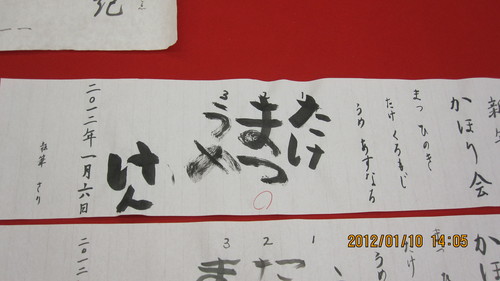 記
新
かほり会
まつ ひのき
たけ くろもじ
うめ あすなろ
1 たけ
2 まつ
3 うめ
けん
二〇一二年一月六日
かほ
まつ ひ
たけ
うめ
1
2 た
3 ま
二〇一二
2012/01/10 14:05